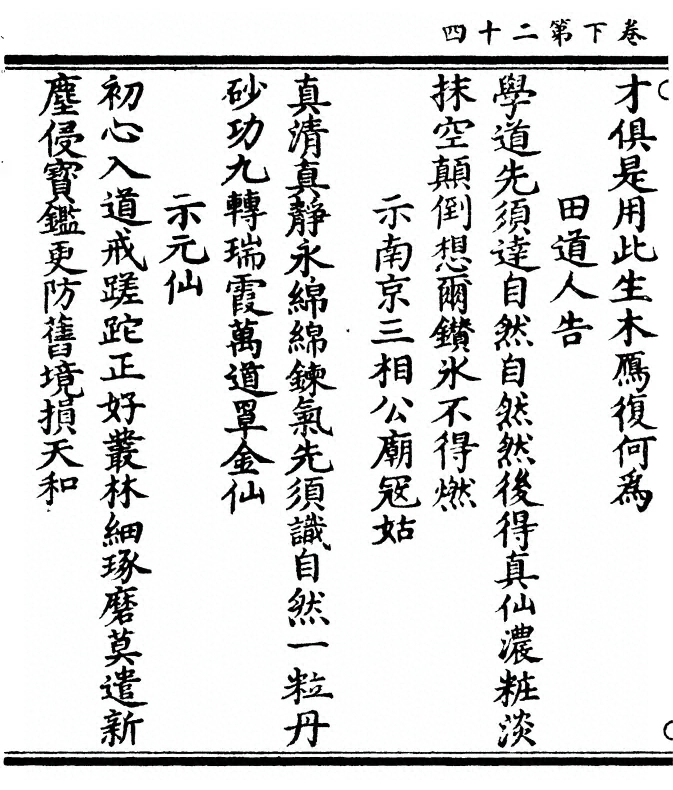 卷下第二十四
才俱是用此生木鴈復何爲
田道人告
學道先須達自然自然然後得真仙濃粧淡
抹空顛倒想爾鑚氷不得燃
示南京三相公廟冦姑
真清真靜永綿綿鍊氣先須識自然一粒丹
砂功九轉瑞霞萬道罩金仙
示元仙
初心入道戒蹉跎正好叢林細琢磨莫遣新
塵侵寶鑑更防舊境損天和